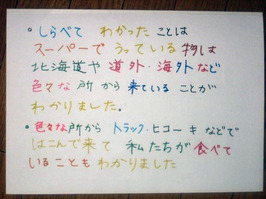 • しらべて わかった ことは
スーパーで うっている 物は
北海道や 道外・海外など
色々な 所 から 来ている ことが
わかりました.
• 色々な所から トラック・ヒコーキ などで
はこんで来て 私たちが 食べて
いることも わかりました